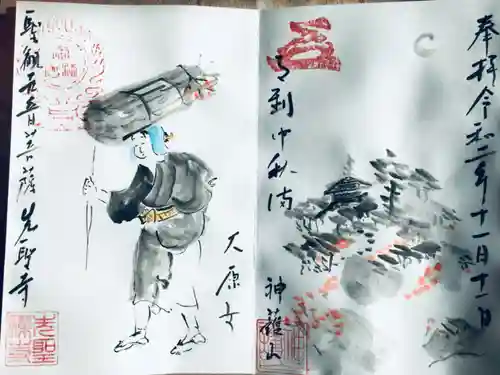 奉拝 令和二年十一月十一日
月到中秋満
神籬山
大原女
聖観世音菩薩 光聖寺